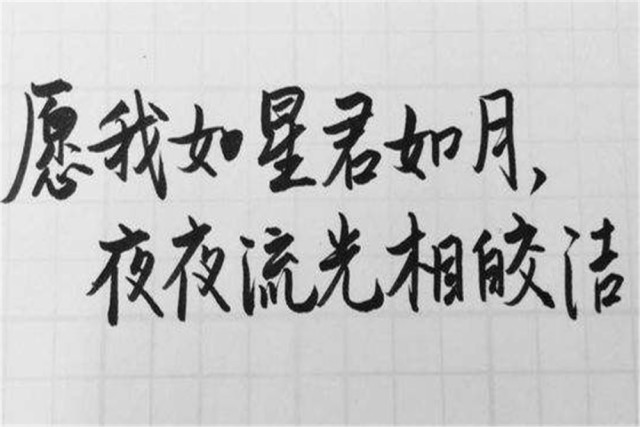 愿我如星君如月,
夜夜流光相皎洁